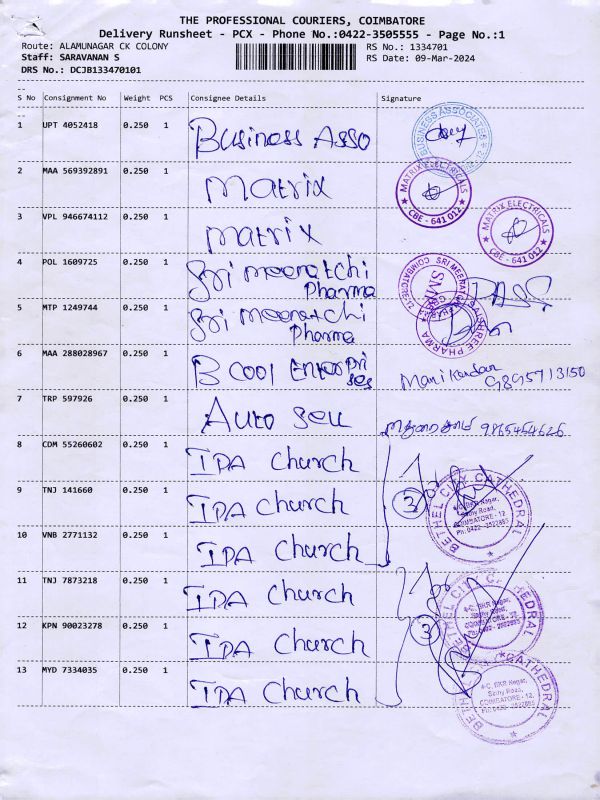 THE PROFESSIONAL COURIERS, COIMBATORE
Delivery Runsheet - PCX - Phone No.:0422-3505555 - Page No.:1
Route: ALAMUNAGAR CK COLONY
RS No.: 1334701
Staff: SARAVANAN S
RS Date: 09-Mar-2024
DRS No.: DCJB133470101
S No Consignment No Weight PCS Consignee Details Signature
1 UPT 4052418 0.250 1 Business Asso
BUSINESS ASSOCIATES
2 MAA 569392891 0.250 1 Matrix
MATRIX ELECTRICALS
CBE - 641 012
3 VPL 946674112 0.250 1 Matrix
MATRIX ELECTRICALS
CBE - 641 012
4 POL 1609725 0.250 1 Sri meenatchi
Pharma
5 MTP 1249744 0.250 1 Sri meenatchi
Pharma
6 MAA 288028967 0.250 1 B cool Enterpri
ses
Manikandan
9895713150
7 TRP 597926 0.250 1 Auto sell
9865454626
8 CDM 55260602 0.250 1 IPA church
9 TNJ 141660 0.250 1 IPA church
3
BETHEL CITY CATHEDRAL
Sathy Road,
COIMBATORE - 12.
10 VNB 2771132 0.250 1 IPA church
11 TNJ 7873218 0.250 1 IPA church
12 KPN 90023278 0.250 1 IPA church
3
BETHEL CITY CATHEDRAL
13 MYD 7334035 0.250 1 IPA church
BETHEL CITY CATHEDRAL
4-C, BKR Nagar,
Sathy Road,
COIMBATORE - 12.